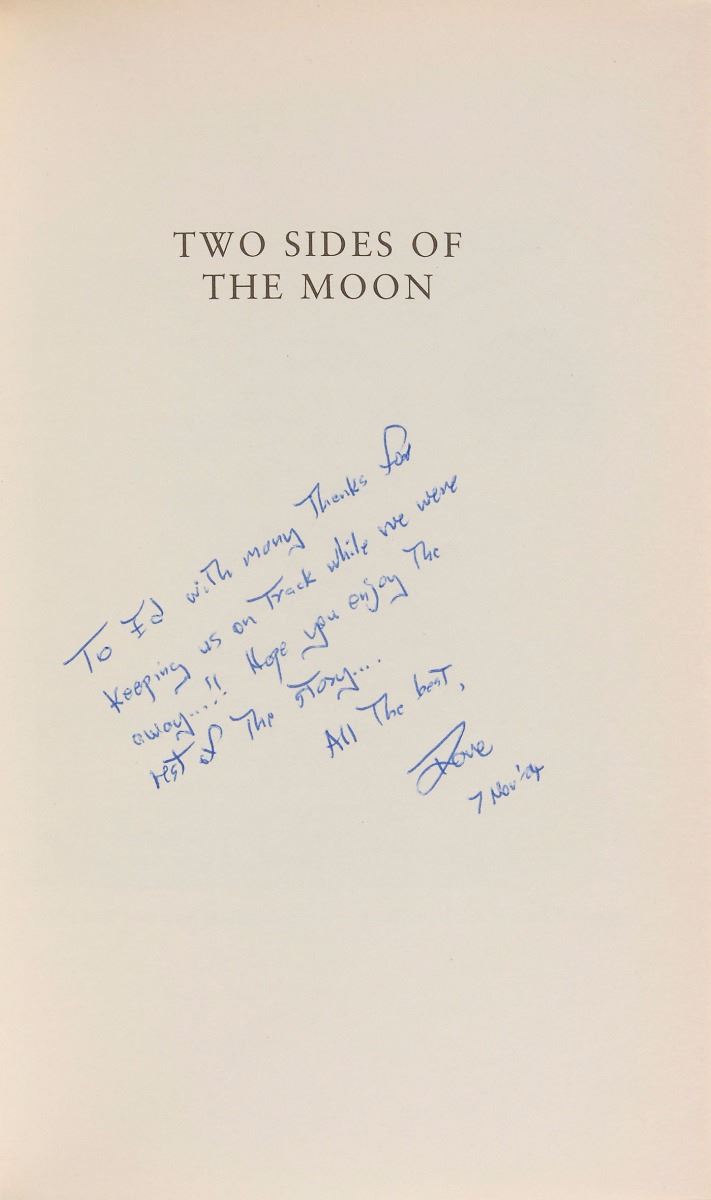 TWO SIDES OF
THE MOON
To Ed with many Thanks for
keeping us on Track while we were
away....!! Hope you enjoy The
rest of The story....
All The best,
Dave
7 Nov '04